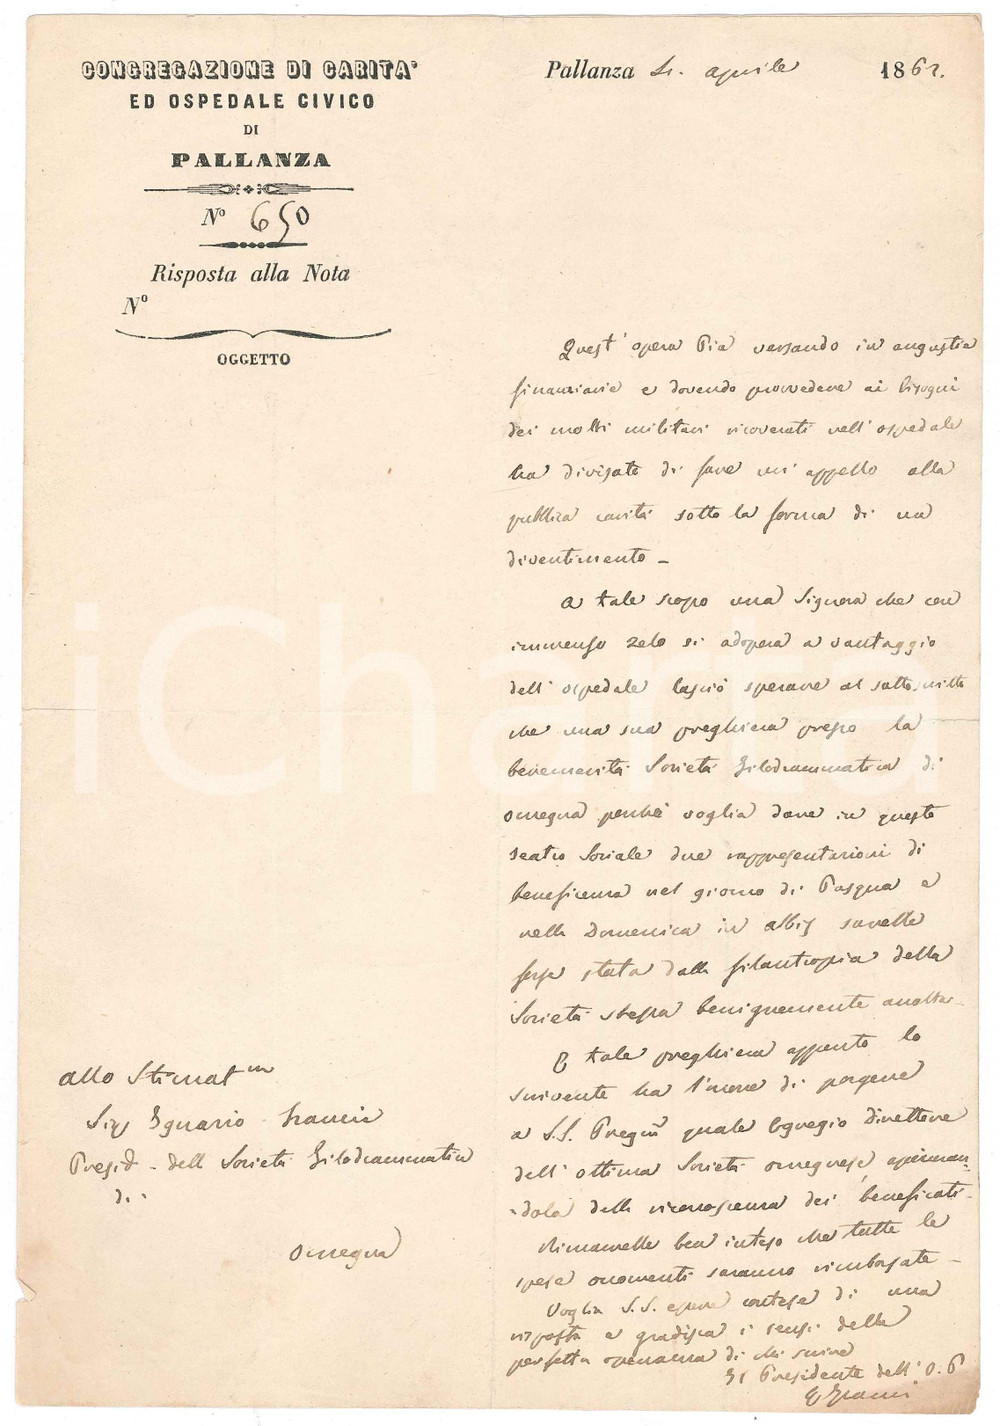 CONGREGAZIONE DI CARITA'
ED OSPEDALE CIVICO
DI
PALLANZA
N° 650
Risposta alla Nota
N°
OGGETTO
Pallanza aprile 1862.
Quest' opera Pia versando in angustia
finanziarie e dovendo provvedere ai bisogni
dei molti militari ricoverati nell' ospedale
ha divisato di fare un' appello alla
pubblica carità sotto la forma di un
divertimento _
A tale scopo una Signora che con
immenso zelo si adopera a vantaggio
dell' ospedale lasciò sperare al sottoscritto
che una sua preghiera presso la
benemerita Società Filodrammatica di
Omegna perchè voglia dare in questo
teatro Sociale due rappresentazioni di
beneficenza nel giorno di Pasqua e
nella Domenica in albis sarebbe
forse stata dalla filantropia della
Società stessa benignamente
E tale preghiera appunto lo
scrivente ha l'onore di porgere
a S.S. Preg.ma quale Egregio direttore
dell' ottima Società omegnese,
dola della riconoscenza dei beneficati.
Rimarrebbe ben inteso che tutte le
spese occorrenti saranno rimborsate _
Voglia S.S. essere cortese di una
risposta e gradisca i sensi della
perfetta di chi scrive
Il Presidente dell' O. P
allo Stimat.mo
Sig. Ignazio
Presid. dell Società Filodrammatica
di
Omegna
iCharta